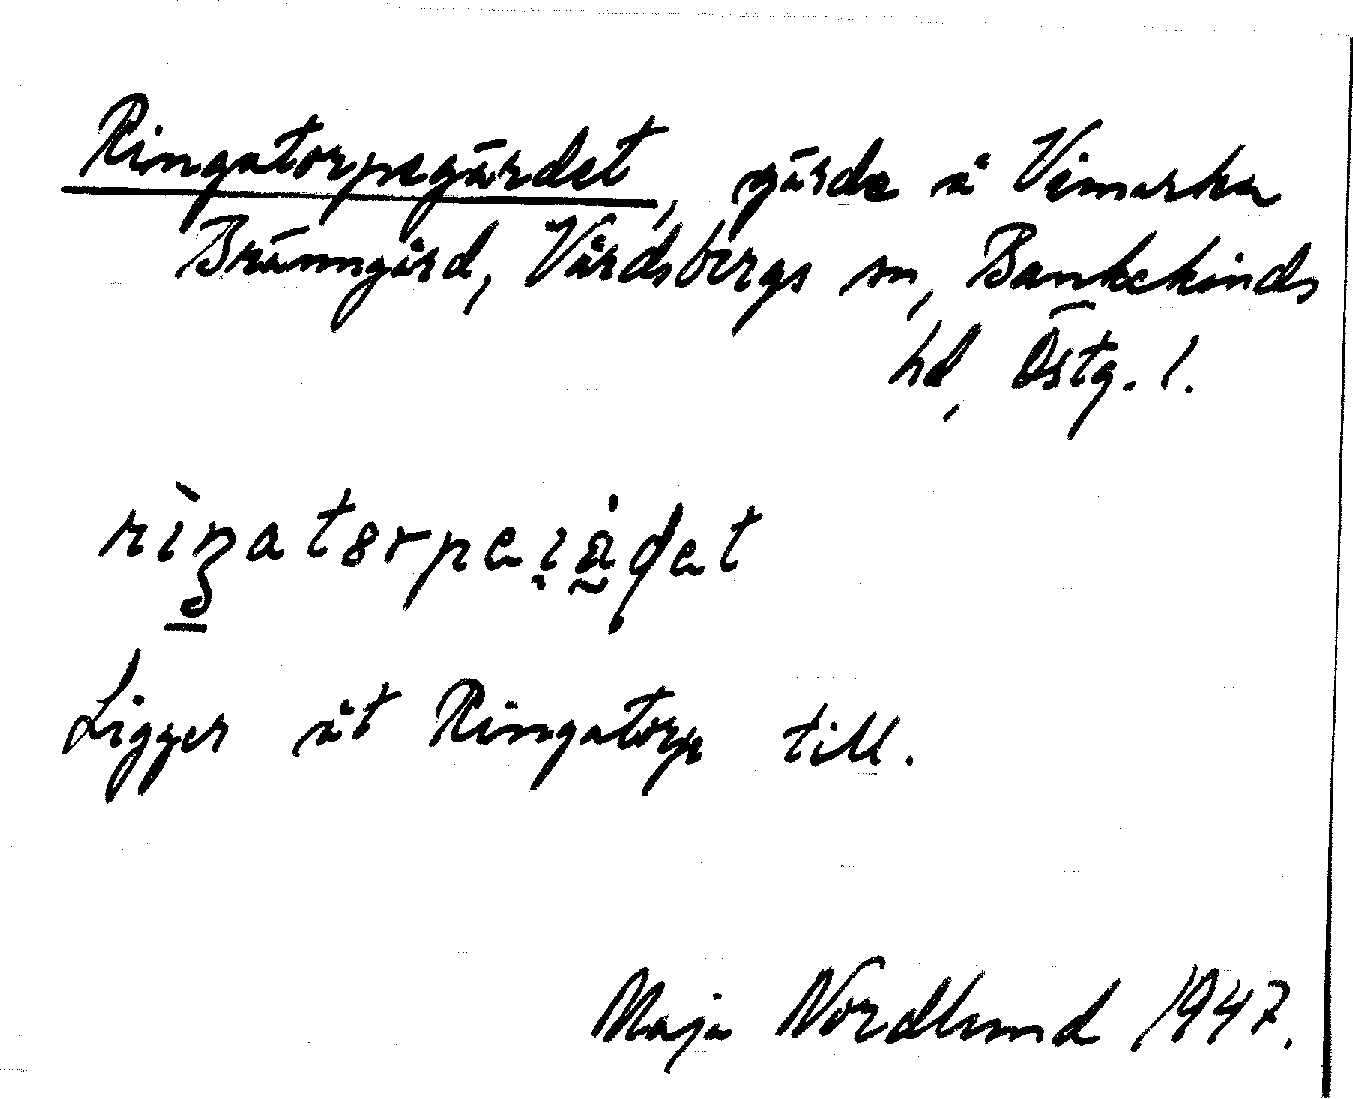 Ringatorpegärdet, gärde å Vimarka
Bränngård, Vårdsbergs sn, Bankekinds
hd, Östg. l.
Ligger åt Ringatorp till.
Maja Nordlund 1947.